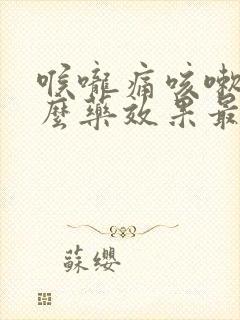 喉嚨痛咳嗽
麼藥效果最
蘇纓